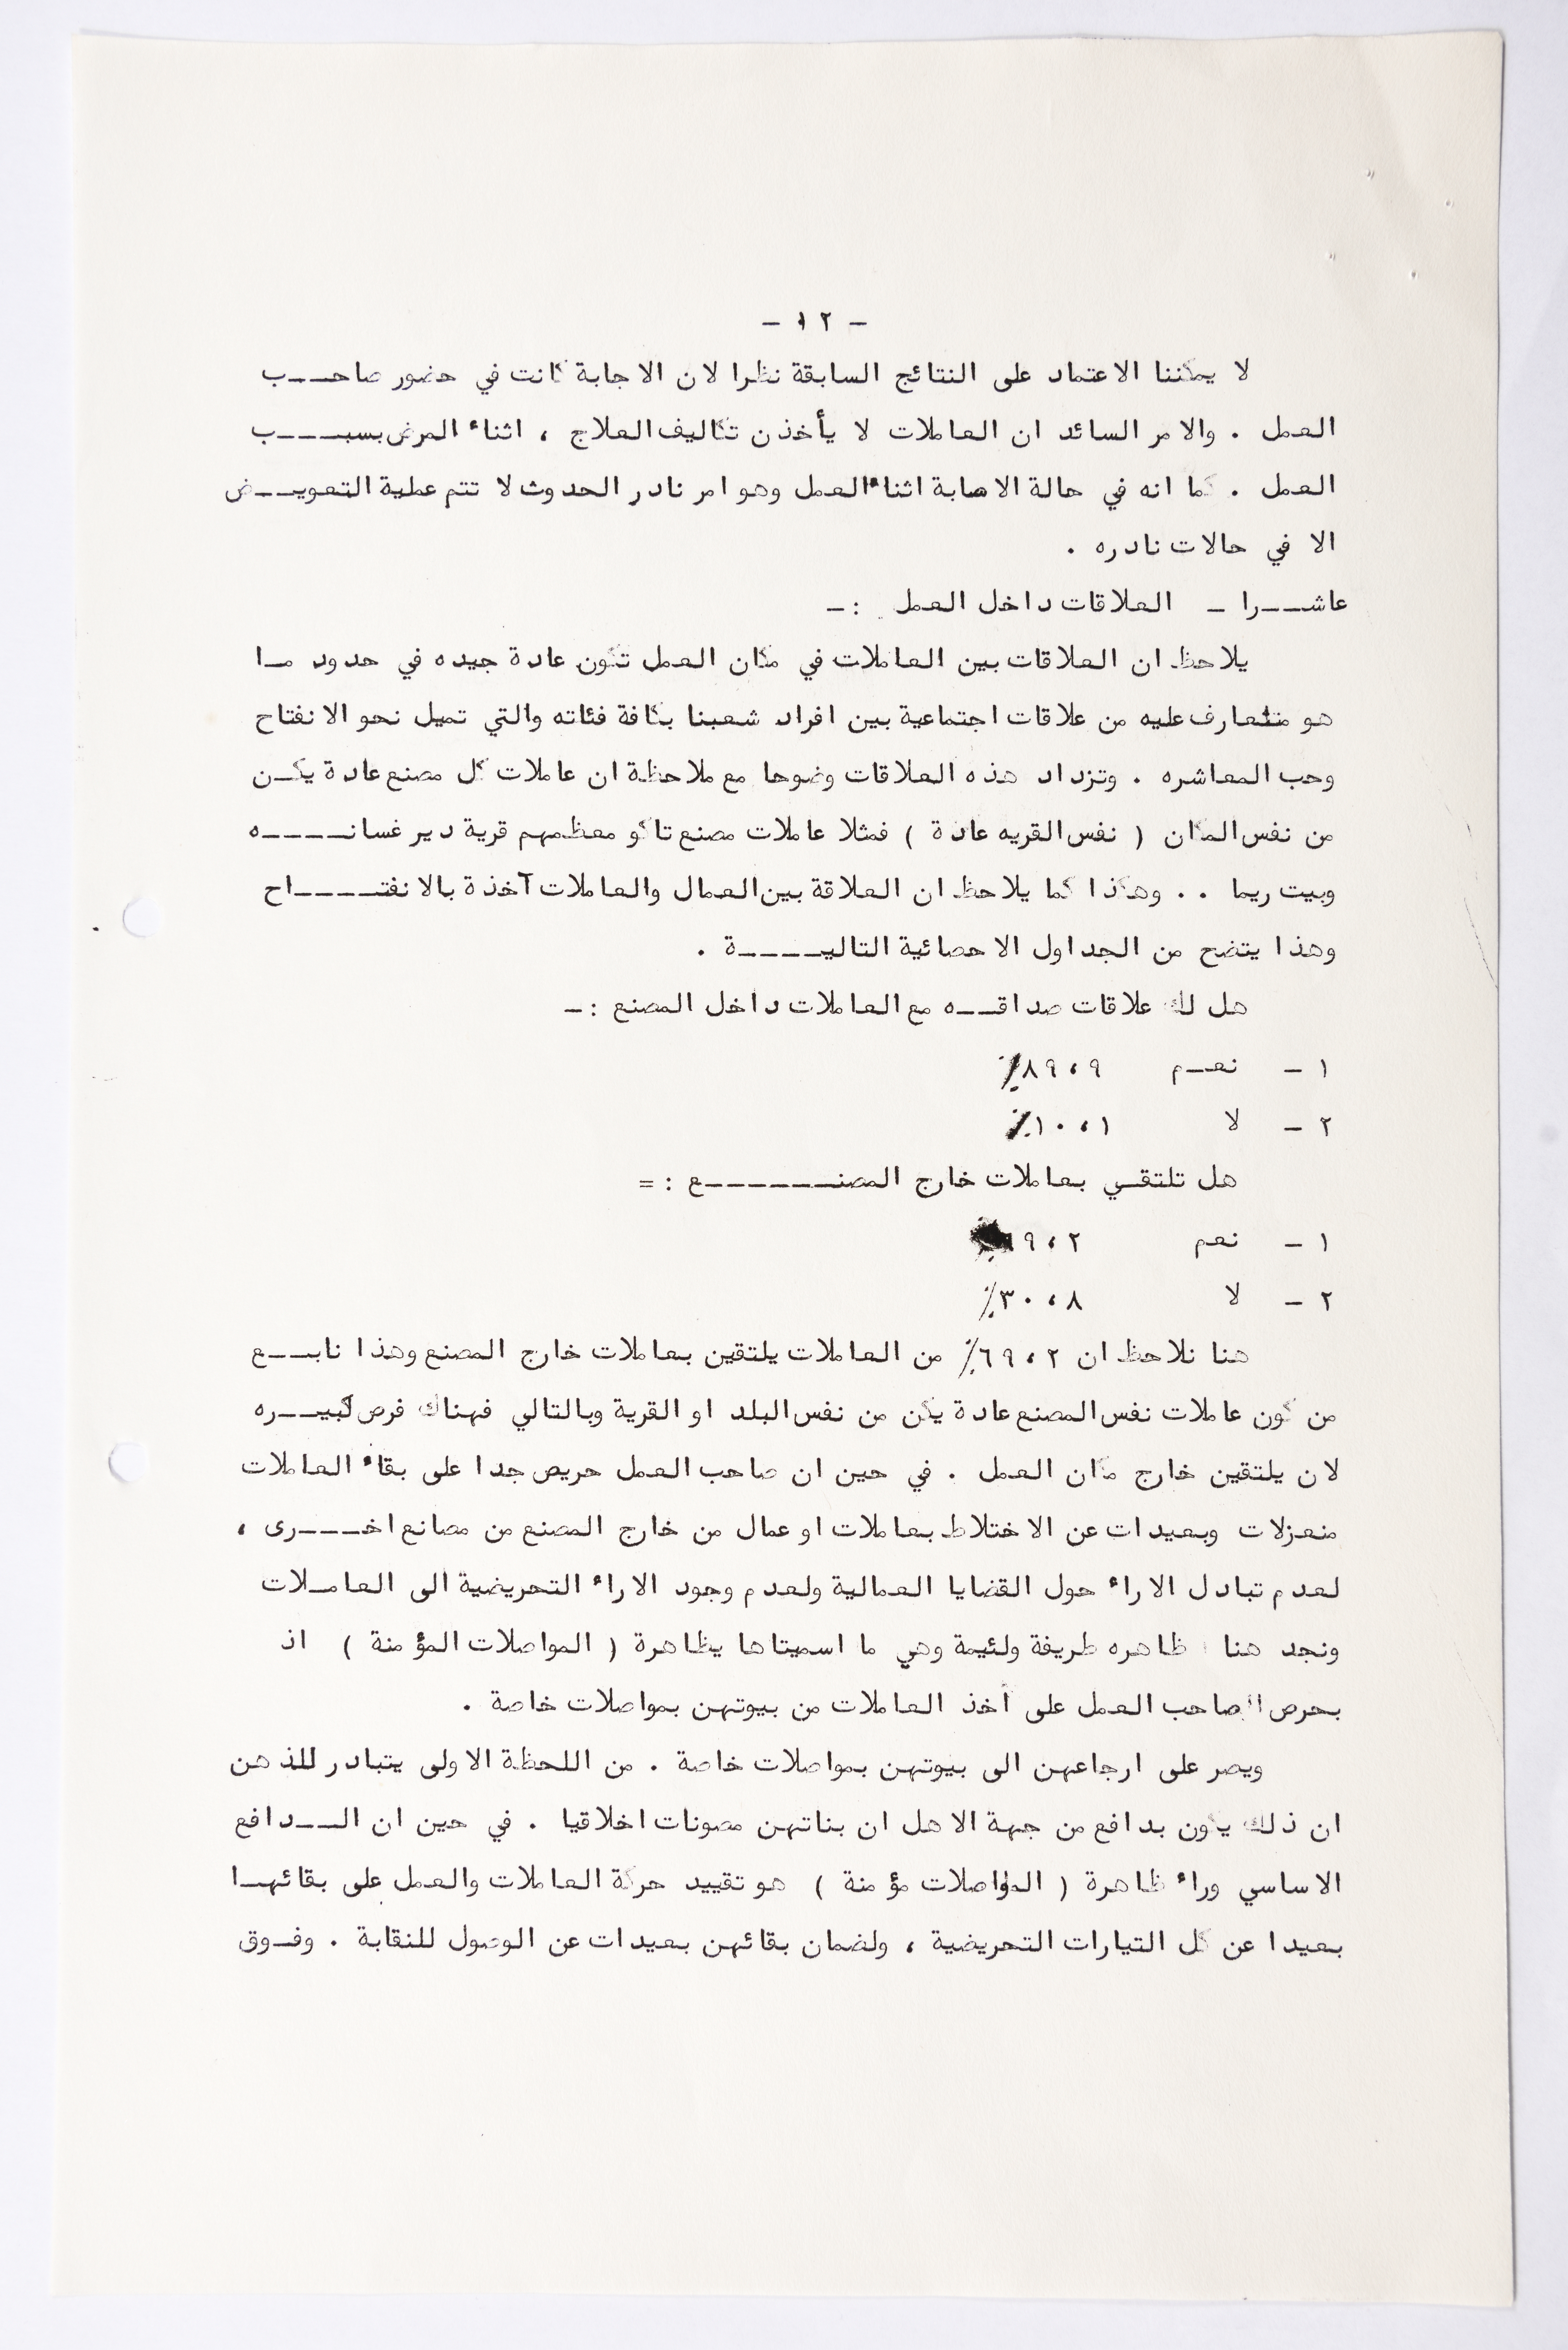 - ١٢ -
لا يمكننا الاعتماد على النتائج السابقة نظرا لان الاجابة كانت في حضور صاحـــب
العمل . والامر السائد ان العاملات لا يأخذن تكاليف العلاج ، اثناء المرض بسبـــب
العمل . كما انه في حالة الاصابة اثناء العمل وهو امر نادر الحدوث لا تتم عملية التعويـــض
الا في حالات نادره .
عاشـــرا - العلاقات داخل العمل :-
يلاحظ ان العلاقات بين العاملات في مكان العمل تكون عادة جيده في حدود مـا
هو متعارف عليه من علاقات اجتماعية بين افراد شعبنا بكافة فئاته والتي تميل نحو الانفتاح
وحب المعاشره . وتزداد هذه العلاقات وضوحا مع ملاحظة ان عاملات كل مصنع عادة يكـن
من نفس المكان ( نفس القريه عادة ) فمثلا عاملات مصنع تاكو معظمهم قرية دير غسانــــه
وبيت ريما .. وهكذا كما يلاحظ ان العلاقة بين العمال والعاملات آخذة بالانفتــــاح
وهذا يتضح من الجداول الاحصائية التاليــــة .
هل لك علاقات صداقــه مع العاملات داخل المصنع :-
١ - نعــم ٨٩،٩٪
٢ - لا ١٠،١٪
هل تلتقـي بعاملات خارج المصنـــــــع : =
١ - نعم ٩،٢
٢ - لا ٣٠،٨٪
هنا نلاحظ ان ٦٩،٢٪ من العاملات يلتقين بعاملات خارج المصنع وهذا نابـــع
من كون عاملات نفس المصنع عادة يكن من نفس البلد او القرية وبالتالي فهناك فرص كبيـــره
لان يلتقين خارج مكان العمل . في حين ان صاحب العمل حريص جدا على بقاء العاملات
منعزلات وبعيدات عن الاختلاط بعاملات او عمال من خارج المصنع من مصانع اخـــرى ،
لعدم تبادل الاراء حول القضايا العمالية ولعدم وجود الاراء التحريضية الى العامـلات
ونجد هنا ظاهره طريفة ولئيمة وهي ما اسميتاها يظاهرة ( المواصلات المؤمنة ) اذ
بحرص صاحب العمل على أخذ العاملات من بيوتهن بمواصلات خاصة .
ويصر على ارجاعهن الى بيوتهن بمواصلات خاصة . من اللحظة الاولى يتبادر للذهن
ان ذلك يكون بدافع من جهة الاهل ان بناتهن مصونات اخلاقيا . في حين ان الـــدافع
الاساسي وراء ظاهرة ( المواصلات مؤمنة ) هو تقييد حركة العاملات والعمل على بقائهـا
بعيدا عن كل التيارات التحريضية ، ولضمان بقائهن بعيدات عن الوصول للنقابة . وفـوق